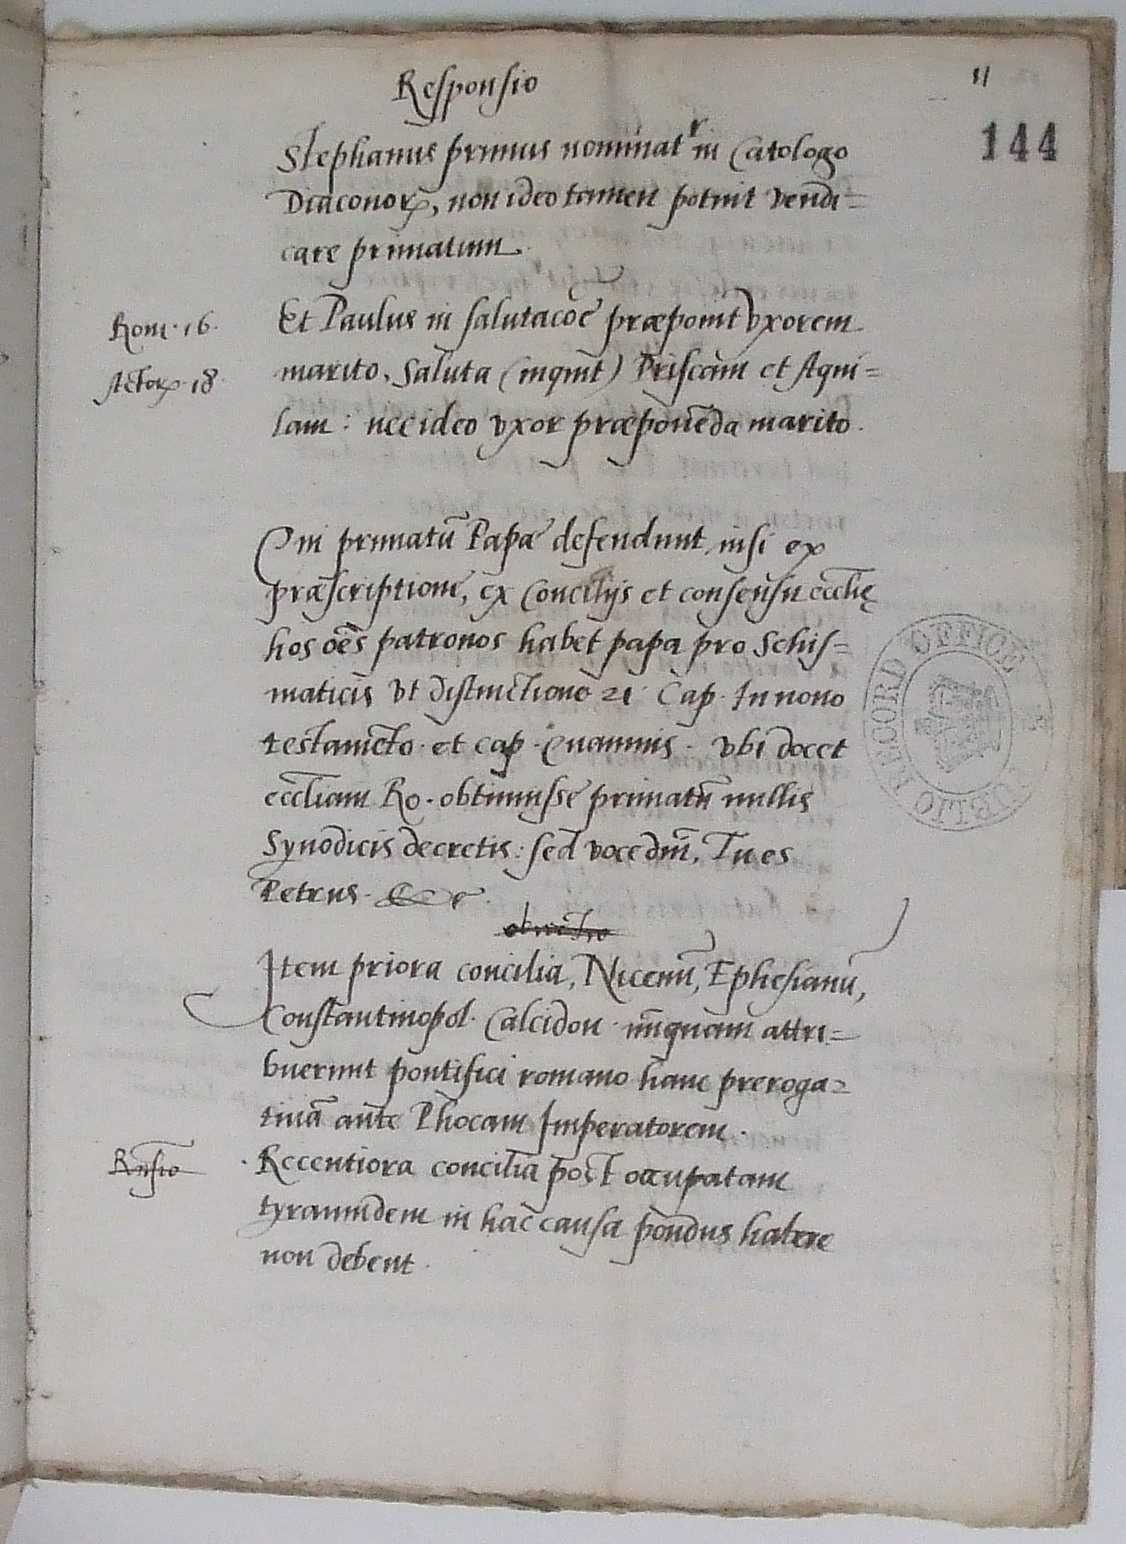 11
144
Responsio
Stephanus primus nominatr in Catologo
Diaconorꝝ, non ideo tamen potuit vendi=
care primatum.
Rom. 16.
Et Paulus in salutacõe præponit vxorem
Actorꝝ. 18.
marito. Saluta (inquit) Priscam et Aqui=
lam: nec ideo vxor præponẽda marito.
Qui primatũ Papæ defendunt nisi ex
præscriptione, ex Concilijs et consensu eccl̃ię
hos oẽs patronos habet papa pro Schis=
maticis vt distinctione 21 Cap. In novo
testamẽto. et cap. Quamvis. vbi docet
eccl̃iam Ro. obtinuisse primatũ nullis
Synodicis decretis: sed voce dñi, Tu es
Petrus. &c
obiectio
Item priora concilia, Nicenũ, Ephesianũ,
Constantinopol. Calcidon. nũquam attri=
buerunt pontifici romano hanc preroga=
tiuã ante Phocam Imperatorem.
Rñsio
Recentiora concilia post occupatam
tyrannidem in hac causa pondus habere
non debent.
PUBLIC RECORD OFFICE